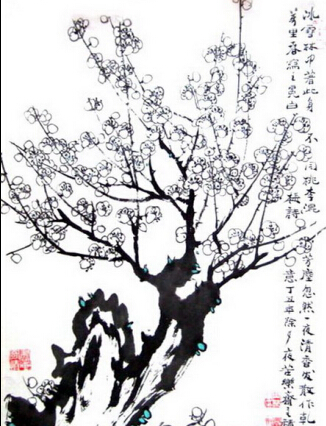 冰雪林中著此身不同桃李混芳塵忽然一夜清香發散作乾
萬里春寫王冕白梅詩意丁丑年除夕夜樂齋